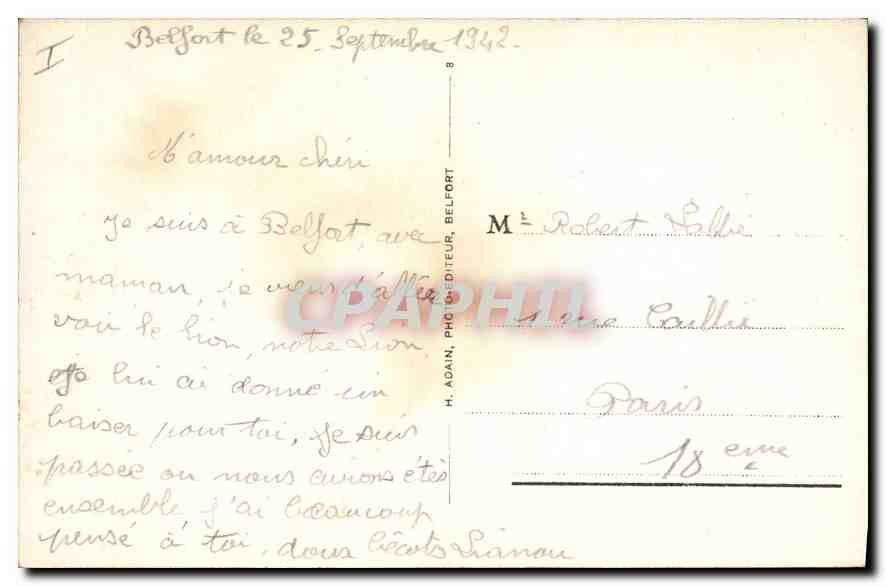 I
Belfort le 25 Septembre 1942.
M'amour chéri
Je suis à Belfort, avec
maman, je viens d'aller
voir le lion, notre Lion,
je lui ai donné un
baiser pour toi, je suis
passée ou nous avions étés
ensemble j'ai beaucoup
pensé à toi, doux bécots
H. ADAIN, PHOTO-EDITEUR, BELFORT
8
Mr Robert
1 rue Caillié
Paris
18 eme
CPAPHIL